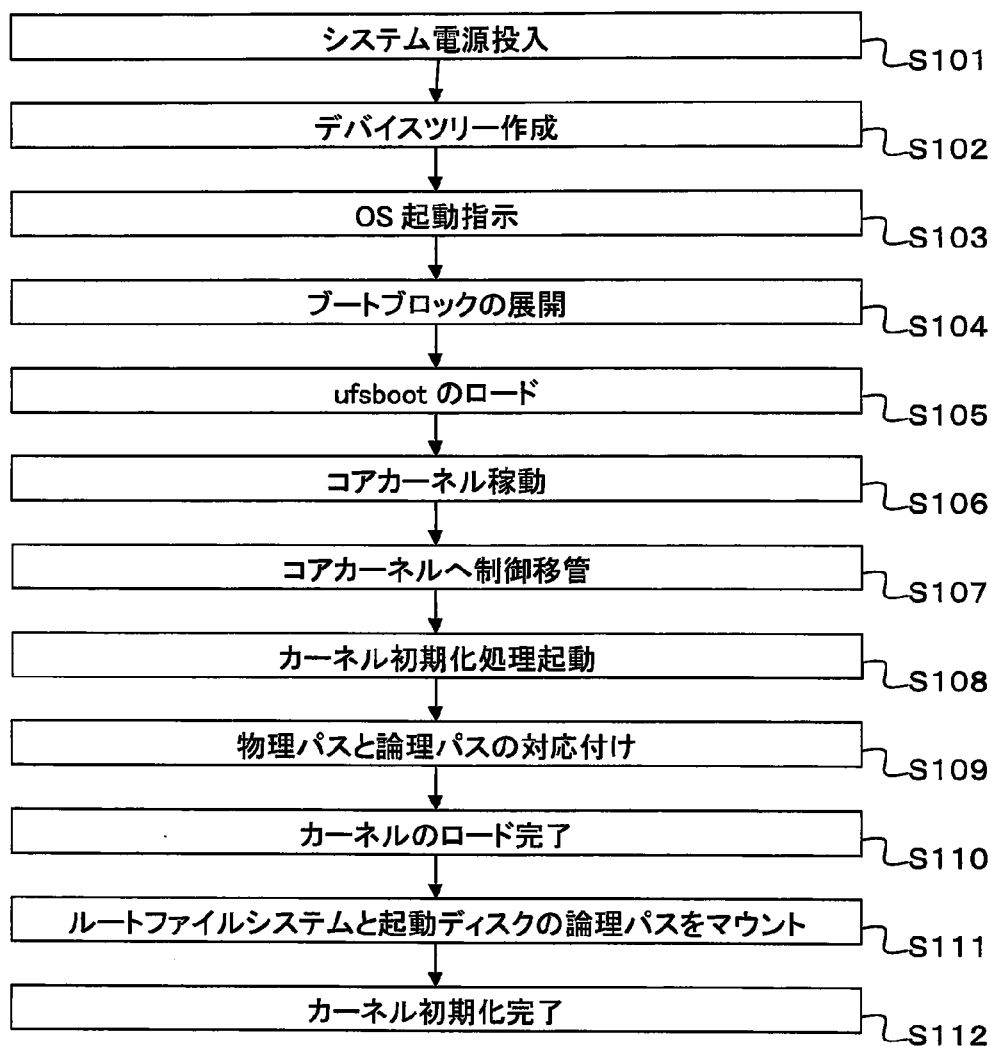 システム電源投入
S101
デバイスツリー作成
S102
OS 起動指示
S103
ブートブロックの展開
S104
ufsboot のロード
S105
コアカーネル稼動
S106
コアカーネルへ制御移管
S107
カーネル初期化処理起動
S108
物理パスと論理パスの対応付け
S109
カーネルのロード完了
S110
ルートファイルシステムと起動ディスクの論理パスをマウント
S111
カーネル初期化完了
S112